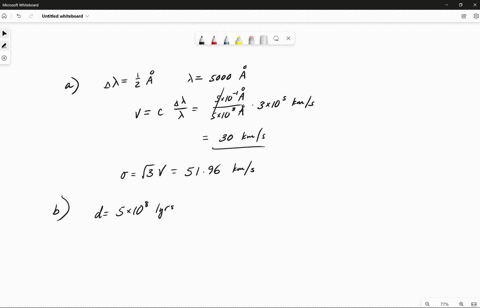 Microsoft Whiteboard
Untitled whiteboard
a) Δλ = 1/2 Å λ = 5000 Å
V = C Δλ/λ = 5×10⁻¹ Å / 5×10³ Å · 3×10⁵ km/s
= 30 km/s
σ = √3 V = 51.96 km/s
b) d = 5×10⁸ lyrs
77%